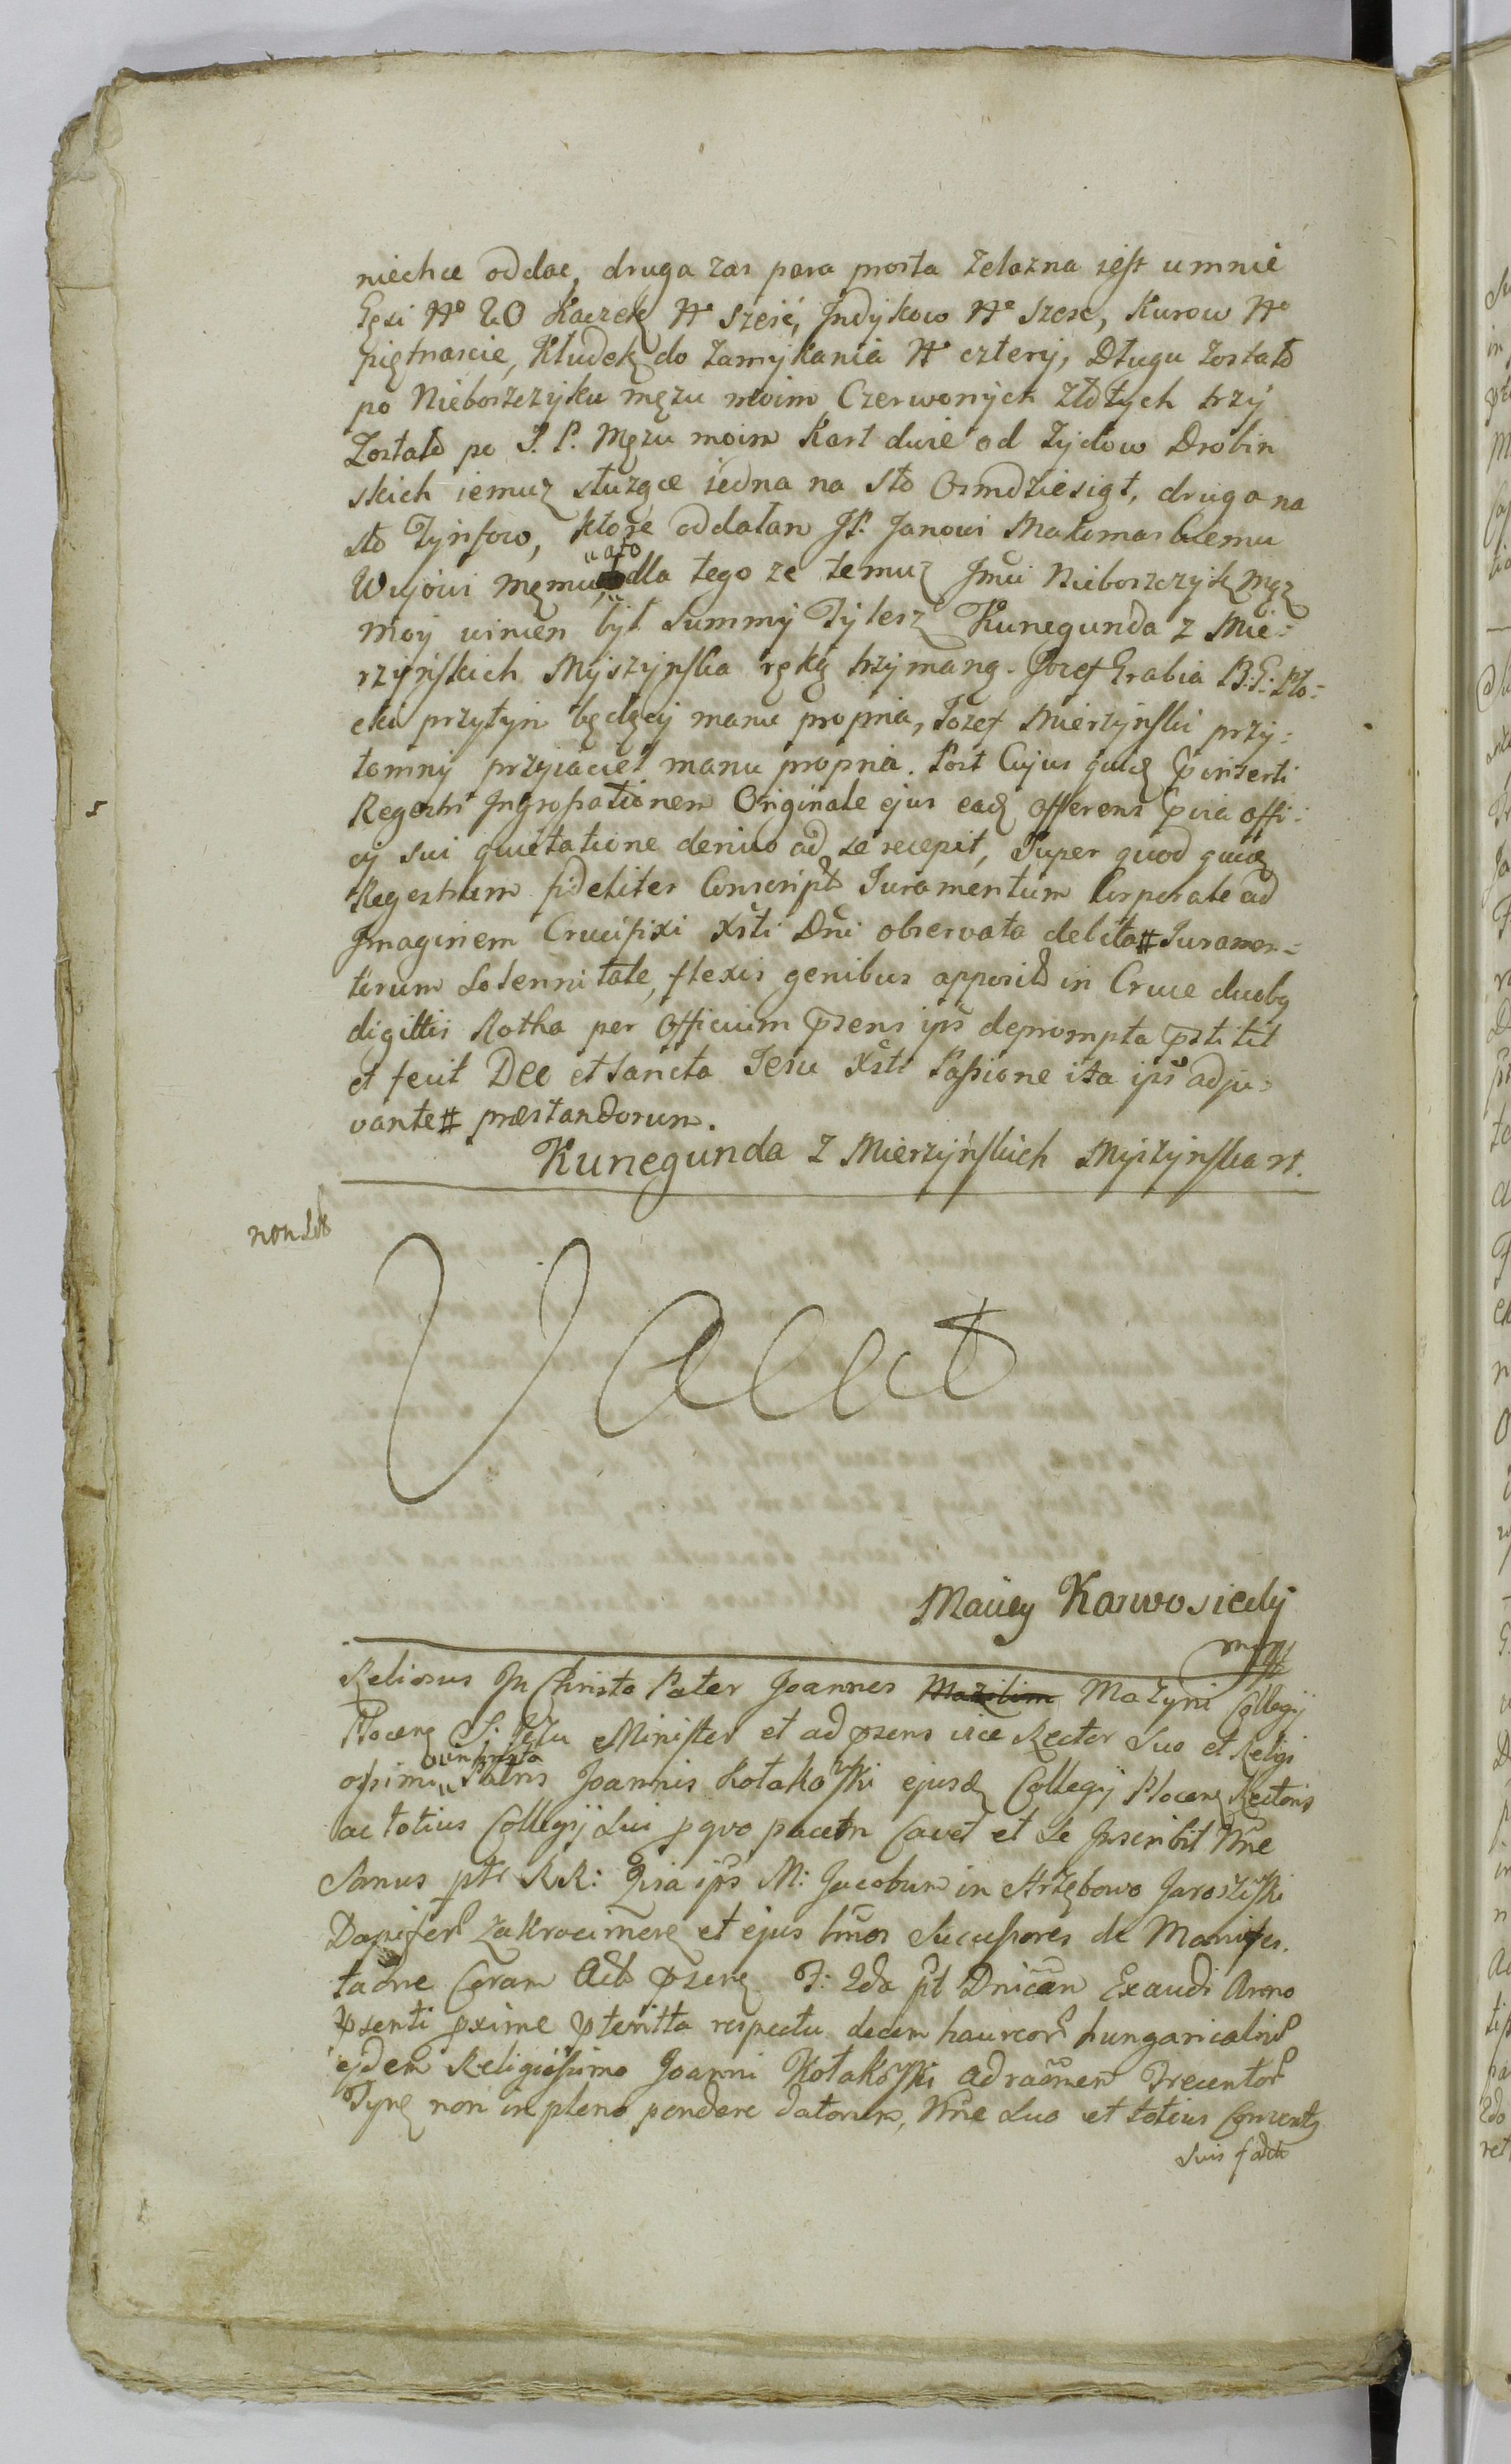 niechce oddac, druga zas para prosta zelazna iest umnie
Gęsi No 20 Kaczek No szesć, Jndykow No szesc, Kurow No
piętnascie, Kłudek do zamykania No cztery, Długu zostało
po Nieboszczyku męzu moim Czerwonych złotych trzy
Zostało po S. P. Męzu moim Kart dwie od Zydow Drobin
skich iemuz słuzące iedna na sto Osmdziesiąt, druga na
sto Tynfow, ktore oddałam JP. Janowi Małomaskiemu
Wujowi memu, a to dla tego ze temuz Jmci Nieboszczyk mąz
moy winien był Summy Tylesz Kunegunda z Mie=
rzyńskich Myszynska ręką trzymaną. Jozef Grabia B: G: Pło=
cki przytym będący manu propria, Jozef Mierzynski przy=
tomny przyiaciel manu propria. Post Cujus quid. pinserti
Regestri Ingrossationem Originale ejus ead. offerens pvia offi=
cij sui quietatione denuo ad se recepit, Super quod quid.
Regestrum fideliter Conscript. Juramentum Corporale ad
Jmaginem Crucifixi Xsti Dni observata debita # Juramen=
torum Solennitate, flexis genibus apposit. in Cruce duobq
digittis Rotha per Officium psens ips deprompta pstitit
et fecit Deo et Sancta Jesu Xsti Passione ita ips adju=
vante # præstandorum.
Kunegunda z Mierzyńskich Myszynska
non
Vacat
Maciey Karwosiecky
mpp
Reliosus Jn Christo Pater Joannes Mazyni Collegij
Plocen. S: Jesu Minister et ad psens vice Rector Suo et Religi
osissimi in Christo Patris Joannis Kołakowski ejusd. Collegij Plocen. Rectoris
ac totius Collegij Sui p quo pacem Cavet et Se Jnscribit Nne
Sanus pti RR: Qvia ips M: Jacobum in Strzębowo Jaroszewski
Dapifer. Zakrocimens. et ejus bnor. Sucessores de Manifes.
taone Coram Act. psen. F: 2da pt Dnicam Exaudi Anno
psenti pxime pteritta respectu decem haureor. hungaricaliu.
ejdem Religiosissimo Joanni Kołakowski ad raonem Trecentor.
Tynf. non in pleno pondere datorum, Nne Suo et totius Conventq
Suis fact